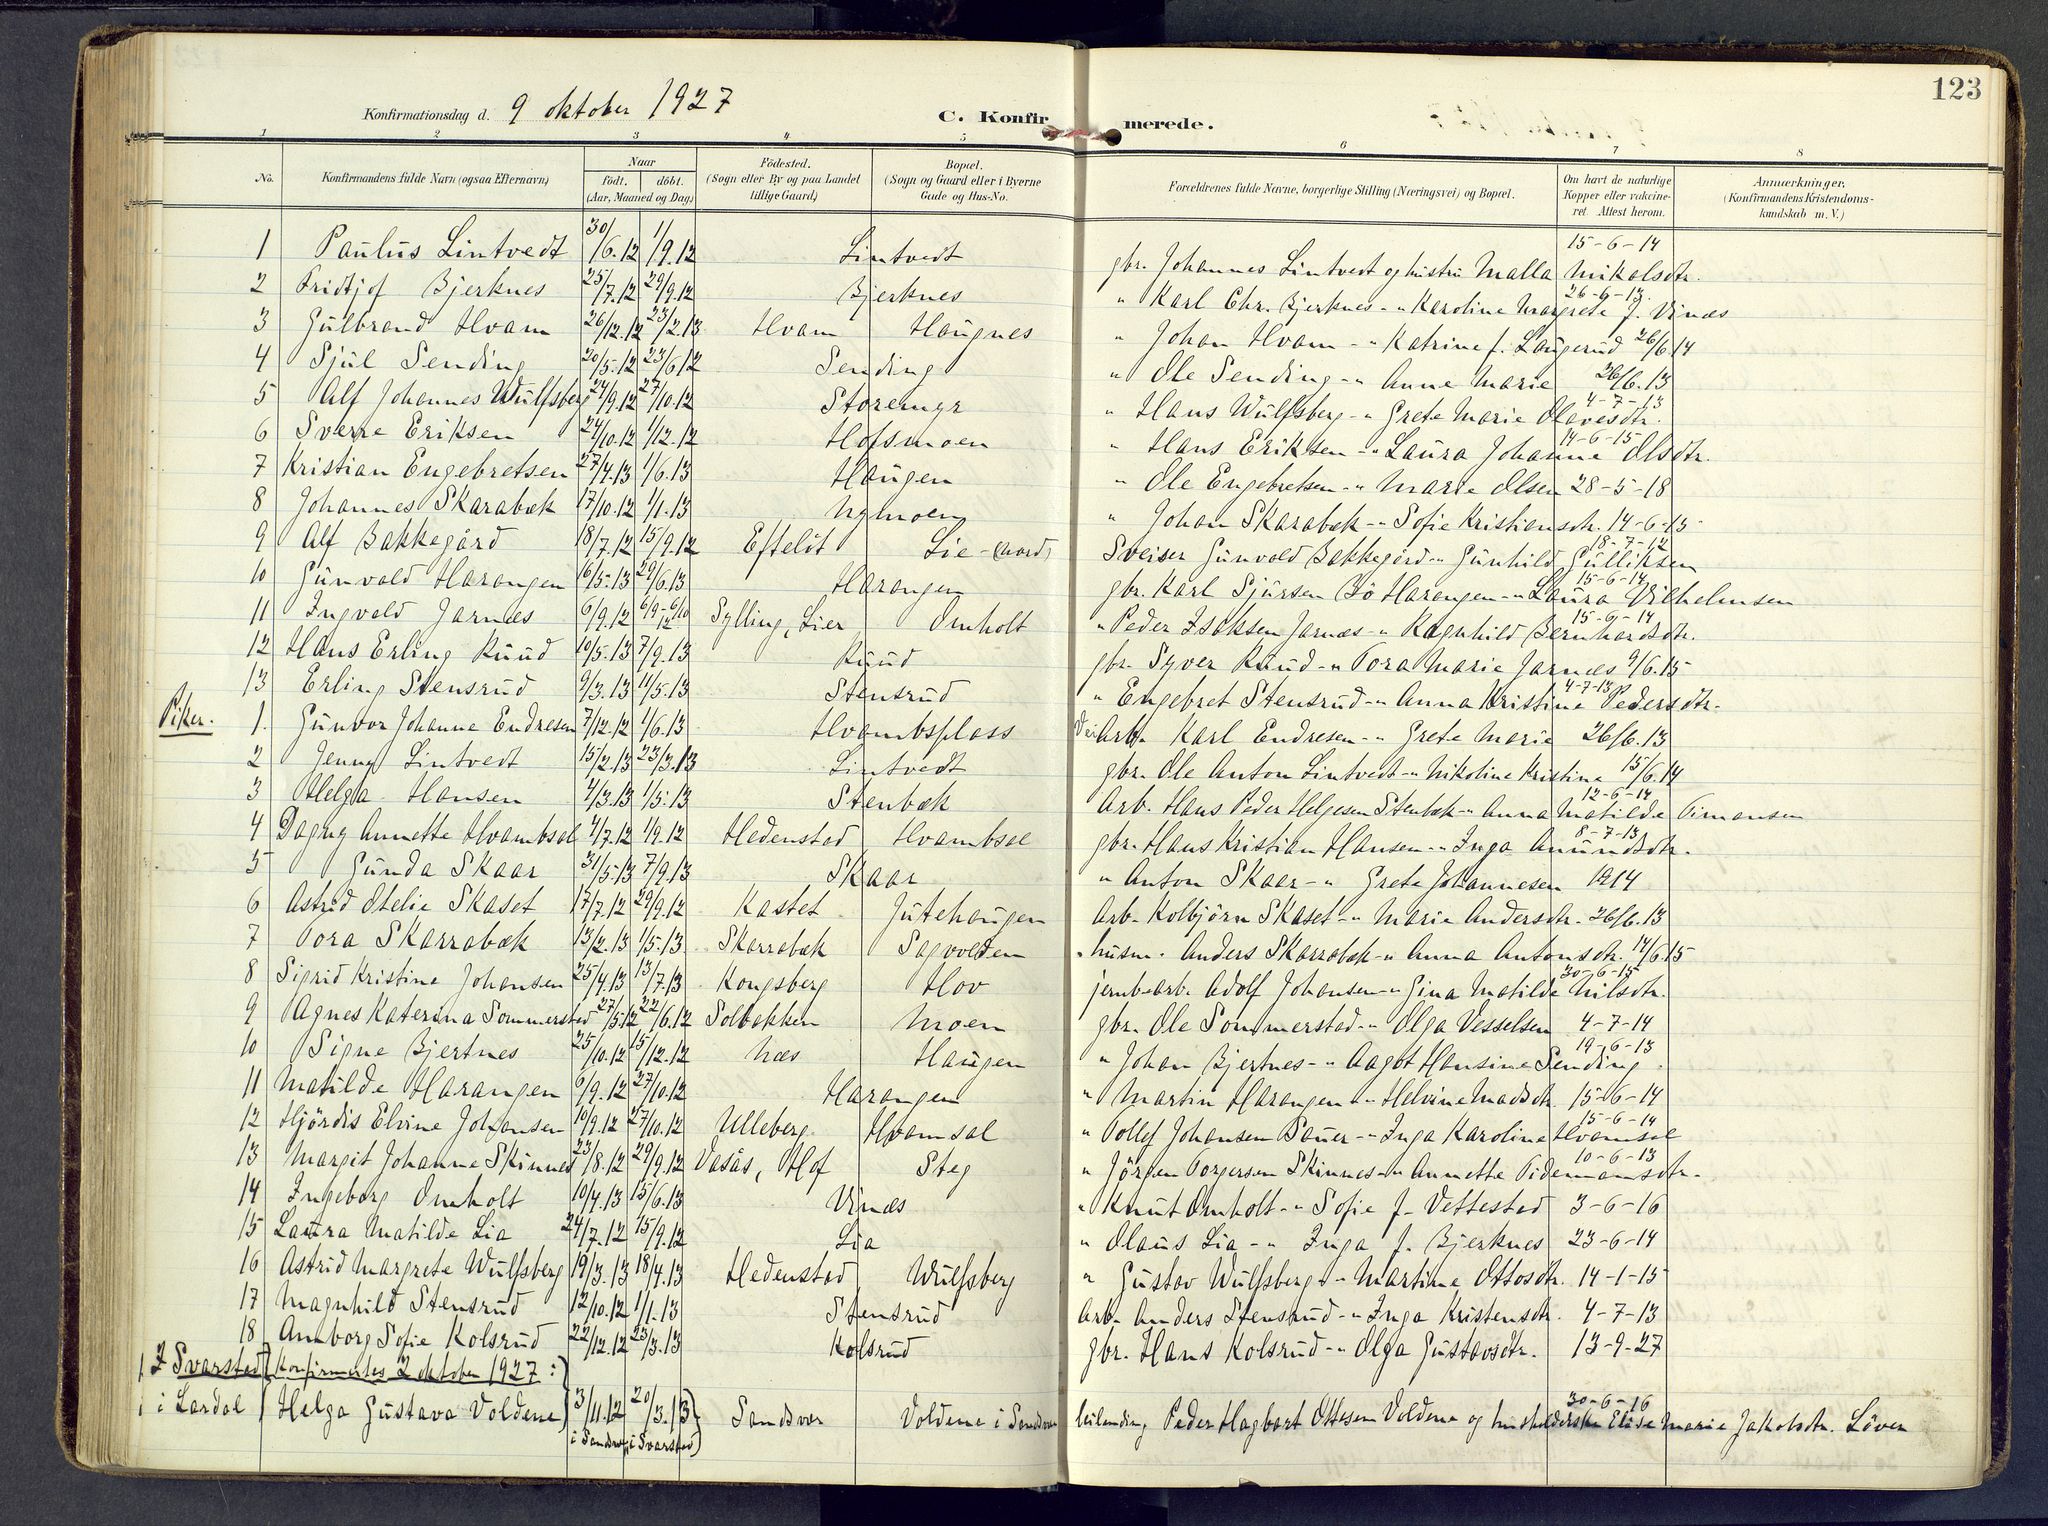 123
Konfirmationsdag d. 9 oktober 1927 C. Konfirmerede.
1 2 3 4 5 6 7 8
No. Konfirmandens fulde Navn (ogsaa Efternavn) Naar födt. döbt. (Aar, Maaned og Dag) Födested. (Sogn eller By og paa Landet tillige Gaard) Bopæl. (Sogn og Gaard eller i Byerne Gade og Hus-No. Forældrenes fulde Navne, borgerlige Stilling (Næringsvei) og Bopæl. Om havt de naturlige Kopper eller vakcineret. Attest herom. Anmærkninger. (Konfirmandens Kristendomskundskab m. V.)
1 Paulus Lintvedt 30/6.12 1/9.12 Lintvedt gbr. Johannes Lintvedt og hustru Malla Mikalsdtr. 15-6-14
2 Fridtjof Bjerknes 25/7.12 29/9.12 Bjerknes " Karl Chr. Bjerknes -"- Karoline Margrete f. Vinæs 26-6-13.
3 Gulbrand Hvam 26/12.12 23/2.13 Hvam Haugnes " Johan Hvam -"- Katrine f. Laugerud 26/6.14
4 Sjul Sending 20/5.12 23/6.12 Sending " Ole Sending -"- Anne Marie 26/6.13
5 Alf Johannes Wulfsberg 24/9.12 27/10.12 Storemyr " Hans Wulfsberg -"- Grete Marie Olavesdtr. 4-7-13
6 Sverre Eriksen 24/10.12 1/12.12 Hofsmoen " Hans Eriksen -"- Laura Johanne Olsdtr. 14-6-15
7 Kristian Engebretsen 27/4.13 1/6.13 Haugen " Ole Engebretsen -"- Marie Olsen 28-5-18
8 Johannes Skarabæk 17/10.12 1/1.13 Nymoen " Johan Skarabæk -"- Sofie Kristiansdtr. 14-6-15
9 Alf Bakkegård 18/7.12 15/9.12 Efteløt Lie - (nord) Sveiser Gunvald Bakkegård -"- Gunhild Gulliksen 18-7-12
10 Gunvald Harangen 16/5.13 29/6.13 Harangen gbr. Karl Sjursen Bö Harangen -"- Laura Vilhelmsen 15-6-14
11 Ingvald Jarnæs 6/9.12 6/9-6/10 12 Sylling, Lier Omholt " Peder Isaksen Jarnæs -"- Ragnhild Bernhardsdtr. 15-6-14
12 Hans Erling Ruud 10/5.13 7/9.13 Ruud gbr. Syver Ruud -"- Tora Marie Jarnæs 9/6.15
13 Erling Stensrud 9/3.13 11/5.13 Stensrud " Engebret Stensrud -"- Anna Kristine Pedersdtr. 4-7-13
Piker.
1. Gunvor Johanne Endresen 7/12.12 1/6.13 Hvambsplass Vei Arb. Karl Endresen -"- Grete Marie 26/6.13
2 Jenny Lintvedt 15/2.13 23/3.13 Lintvedt gbr. Ole Anton Lintvedt -"- Nikoline Kristine 15/6.14
3 Helga Hansen 4/3.13 1/5.13 Stenbæk Arb. Hans Peder Helgesen Stenbæk -"- Anna Matilde Timansen 12-6-14
4 Dagny Annette Hvambsal 4/7.12 1/9.12 Hedenstad Hvambsal gbr. Hans Kristian Hansen -"- Inga Amundsdtr. 8-7-13
5 Gunda Skaar 31/5.13 7/9.13 Skaar " Anton Skaar -"- Grete Johannesen 1914
6 Astrid Otelie Skaset 17/7.12 29/9.12 Kastet Jutehaugen Arb. Kolbjörn Skaset -"- Marie Andersdtr. 26/6.13
7 Tora Skarrabæk 13/2.13 1/5.13 Skarrabæk Sagvolden " husm. Anders Skarrabæk -"- Anna Antonsdtr. 14/6.15
8 Sigrid Kristine Johansen 25/4.13 13/7.13 Kongsberg Hov jernb-arb. Adolf Johansen -"- Gina Matilde Nilsdtr. 30-6-15
9 Agnes Katerina Sommerstad 27/5.12 22/6.12 Solbakken Moen gbr. Ole Sommerstad -"- Olga Vesselsen 4-7-14
10 Signe Bjertnes 25/10.12 15/12.12 Næs Haugen " Johan Bjertnes -"- Aagot Hansine Sending 19-6-13
11 Matilde Harangen 6/9.12 27/10.12 Harangen " Martin Harangen -"- Helvine Madsdtr. 15-6-14
12 Hjördis Elvine Johansen 10/9.12 27/10.12 Ulleberg Hvamsal " Tollef Johansen Sauer -"- Inga Karoline Hvamsal 15-6-14
13 Margit Johanne Skinnes 23/8.12 29/9.12 Vasås, Hof Steg " Jörgen Torgersen Skinnes -"- Annette Tidemansdtr. 10-6-13
14 Ingeborg Omholt 10/4.13 15/6.13 Vinæs " Knut Omholt -"- Sofie f. Vettestad 3-6-16
15 Laura Matilde Lia 24/7.12 15/9.12 Lia " Olaus Lia -"- Inga f. Bjerknes 23-6-14
16 Astrid Margrete Wulfsberg 19/3.13 18/4.13 Hedenstad Wulfsberg " Gustav Wulfsberg -"- Martine Ottosdtr. 14-1-15
17 Magnhild Stensrud 12/10.12 1/1.13 Stensrud Arb. Anders Stensrud -"- Inga Kristensdtr. 4-7-13
18 Amborg Sofie Kolsrud 22/12.12 23/3.13 Kolsrud gbr. Hans Kolsrud -"- Olga Gustavsdtr. 13-9-27
I Svarstad i Lardal konfirmertes 2 oktober 1927:
Helga Gustava Voldene 3/11.12 i Sandsv. 20/3.13 i Svarstad Sandsvær Voldene i Sandsvær leilending Peder Hagbart Ottesen Voldene og husholderske Elise Marie Jakobsdtr. Löven 30-6-16